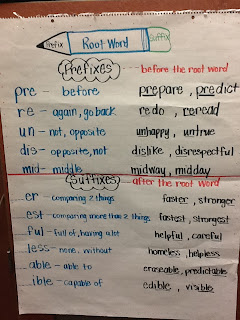 Prefix Root Word Suffix
Prefixes - before the root word
pre - before prepare, predict
re - again, go back redo, reread
un - not, opposite unhappy, untrue
dis - opposite, not dislike, disrespectful
mid - middle midway, midday
Suffixes - after the root word
er - comparing 2 things faster, stronger
est - comparing more than 2 things fastest, strongest
ful - full of, having a lot helpful, careful
less - none, without homeless, helpless
able - able to eraseable, predictable
ible - capable of edible, visible